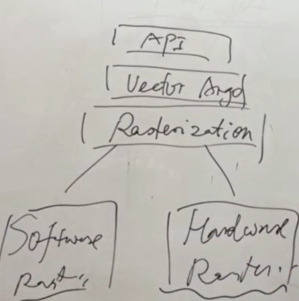 API
Vector Argo
Rasterization
Software
Hardware
Rast.
Raster.